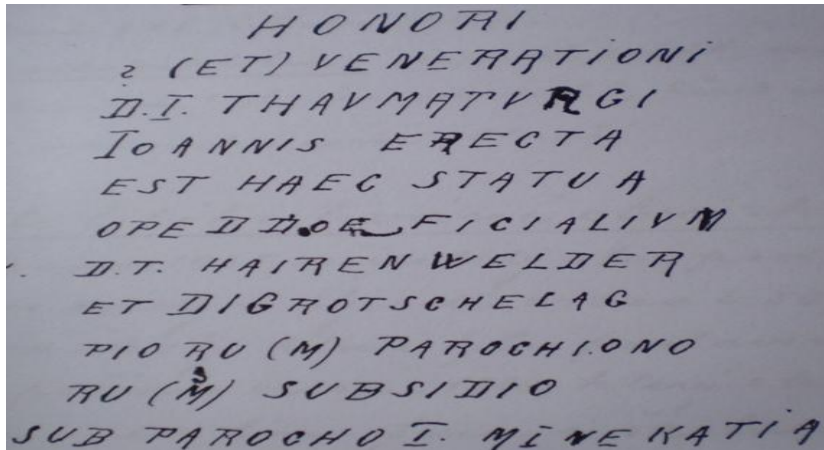 HONORI
? (ET) VENERATIONI
D.I. THAVMATVRGI
IOANNIS ERECTA
EST HAEC STATUA
OPE D D.OE FICIALIVM
D.T. HAIRENWELDER
ET DIGROTSCHELAG
PIO RU (M) PAROCHI.ONO
RU (M) SUBSIDIO
SUB PAROCHO I. MINEKATIA